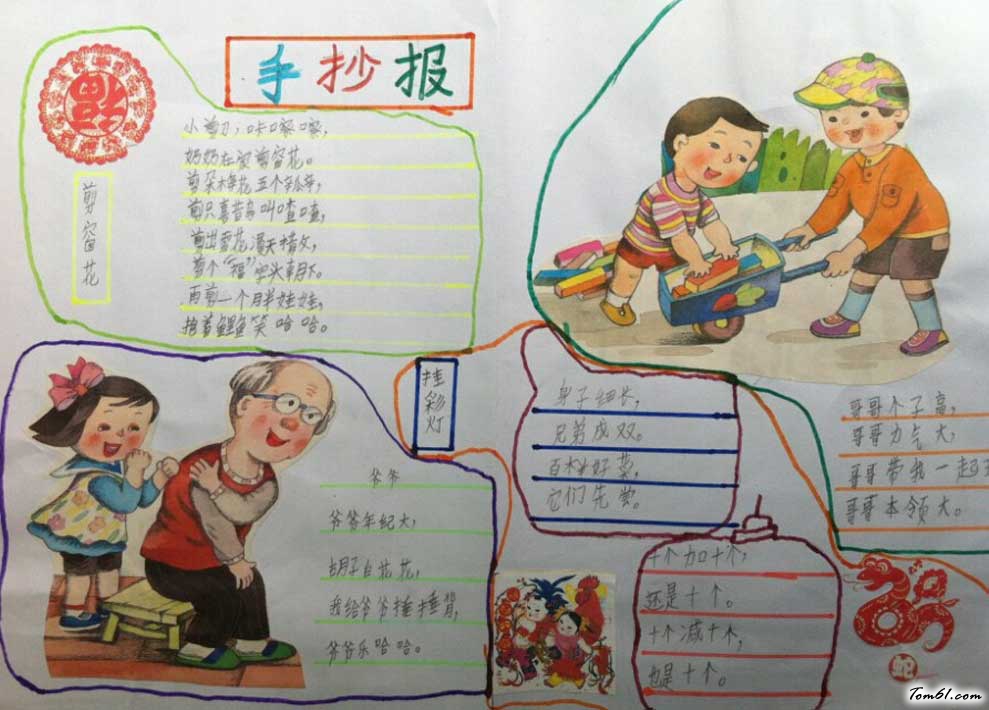 手抄报
福
剪窗花
小剪刀，咔嚓嚓，
奶奶在家剪窗花。
剪朵梅花五个瓣，
剪只喜昔鸟叫喳喳，
剪出雪花满天
剪个“福”字头朝下。
再剪一个胖娃娃，
抱着鲤鱼笑哈哈。
挂彩灯
身子细长，
兄弟成双。
百样好菜，
它们先尝。
哥哥个子高，
哥哥力气大，
哥哥带我一起
哥哥本领大。
爷爷
爷爷年纪大，
胡子白花花，
我给爷爷捶捶背，
爷爷乐哈哈。
十个加十个，
还是十个。
十个减十个，
也是十个。
蛇
Tom61.com